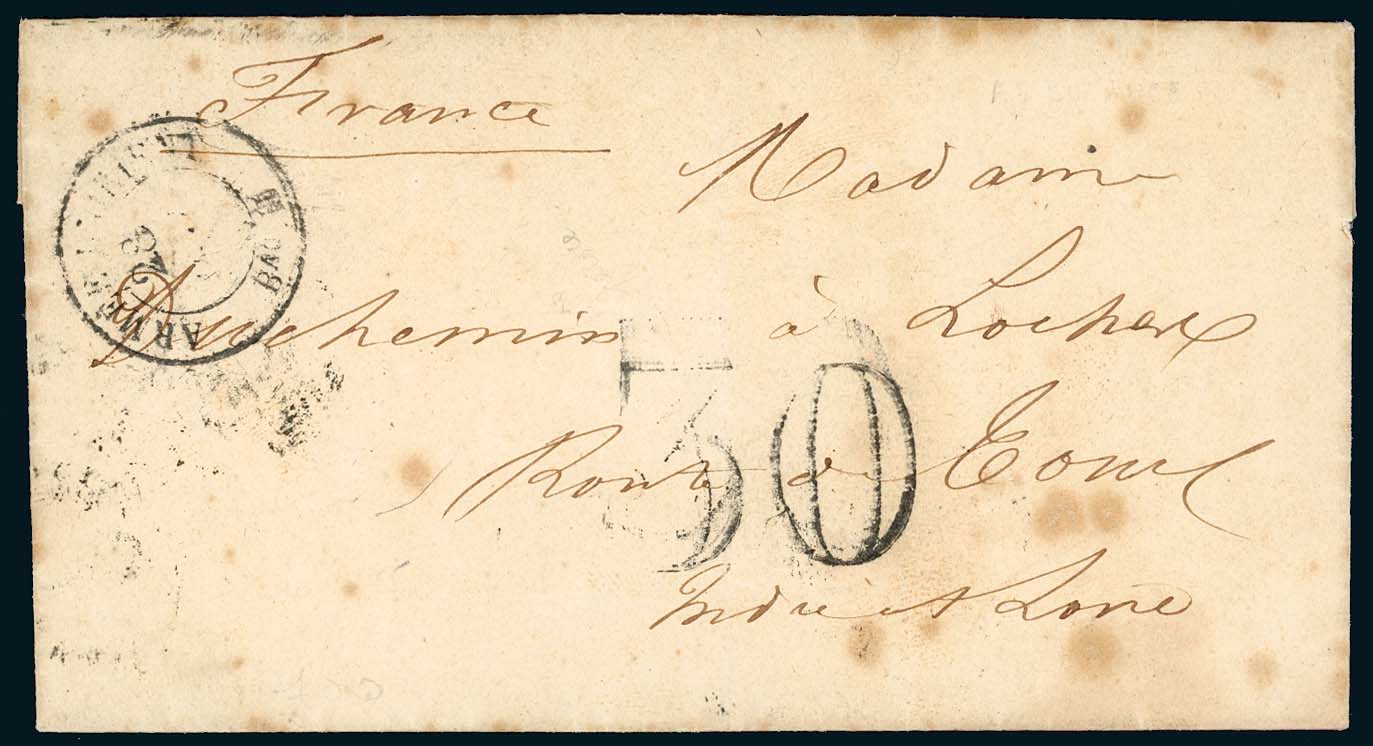 France
Madame
Duchemin à Loches
Route de Tours
Indre et Loire
30
ARMÉE D'ORIENT
28
Bau H